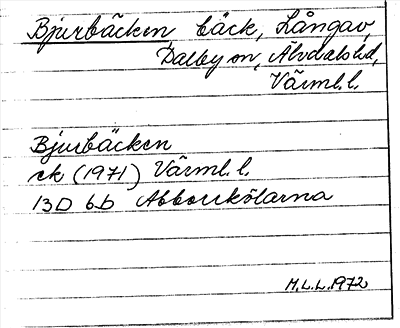 Bjurbäcken bäck, Långav,
Dalby sn, Älvdals hd,
Värml. l.
Bjurbäcken
ek (1971) Värml. l.
13D 6b Abborrkölarna
M.L.L. 1972